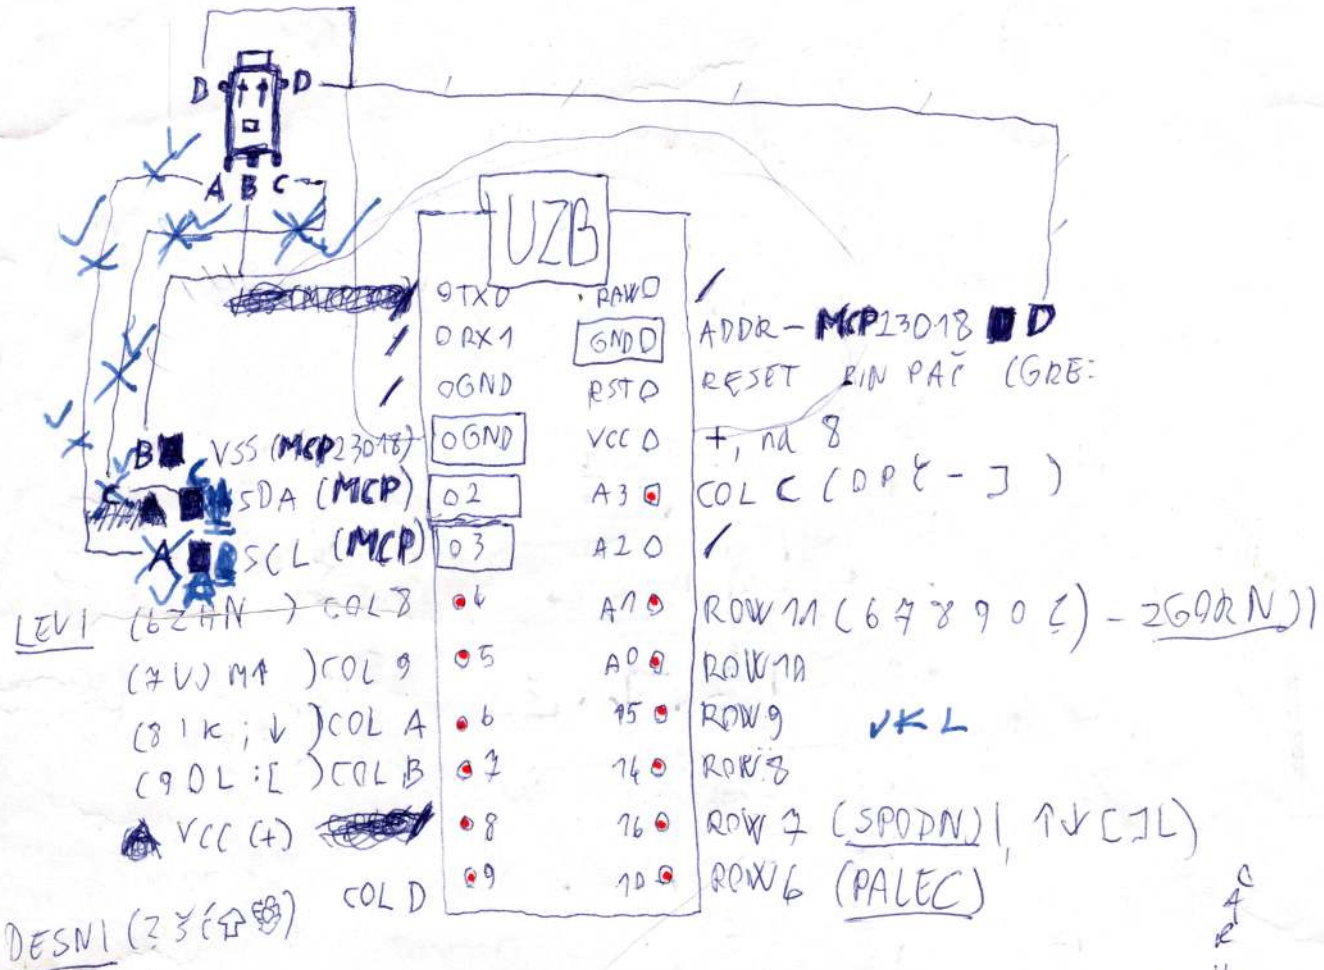 D D
A B C
UZB
TX0 RAW
RX1 GND ADDR - MCP23018 D
GND RST RESET PIN PAČ (GRE:
B VSS (MCP23018) GND VCC +, na 8
C SDA (MCP) 2 A3 COL C (0PĆ - J)
A SCL (MCP) 3 A2
A
LEVI (6ZHN ) COL8 4 A1 ROW 11 (67890 ) - ZGORNJI
(7UJM↑ ) COL 9 5 A0 ROW 10
(8IK;↓ ) COL A 6 15 ROW 9 JKL
(9OL:[ ) COL B 7 14 ROW 8
VCC (+) 8 16 ROW 7 (SPODNJI, ↑↓[]L)
COL D 9 10 ROW 6 (PALEC)
DESNI